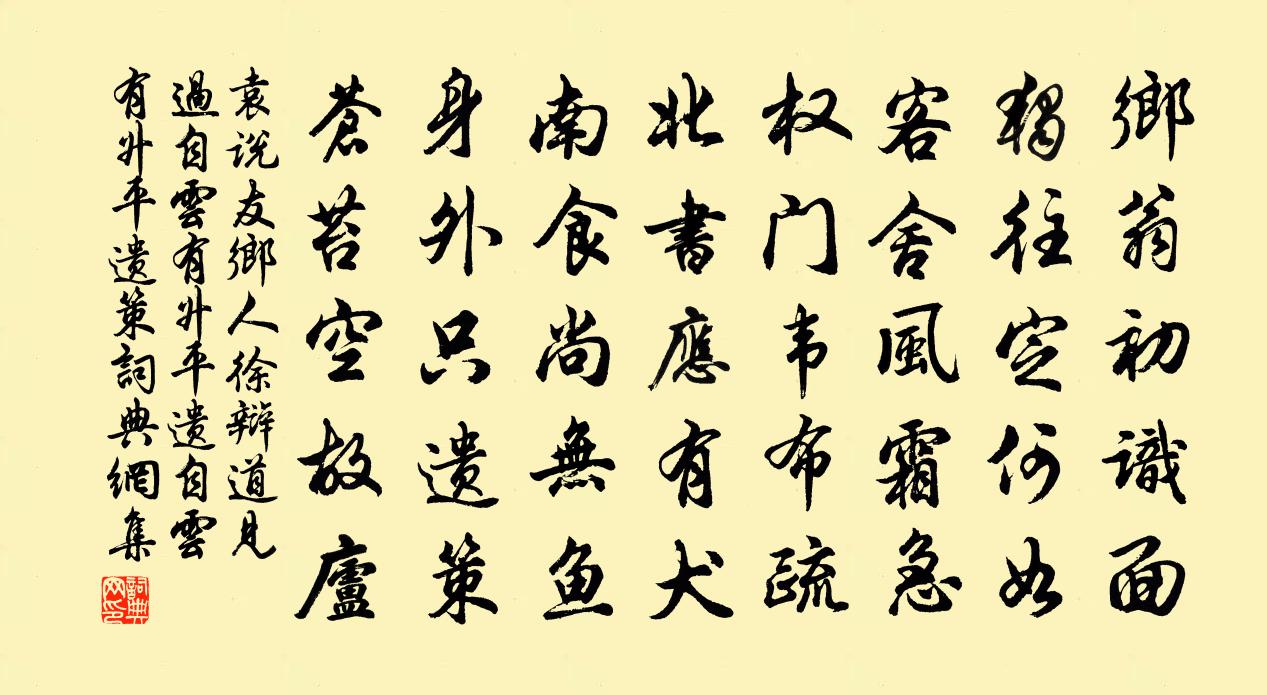 鄉翁初識面
獨往定何如
客舍風霜急
权门韦布疏
北書應有犬
南食尚無鱼
身外只遗策
蒼苔空故廬
袁说友鄉人徐辯道见
過自雲有外平遗自雲
有外平遗策詞典網集
詞典
网印